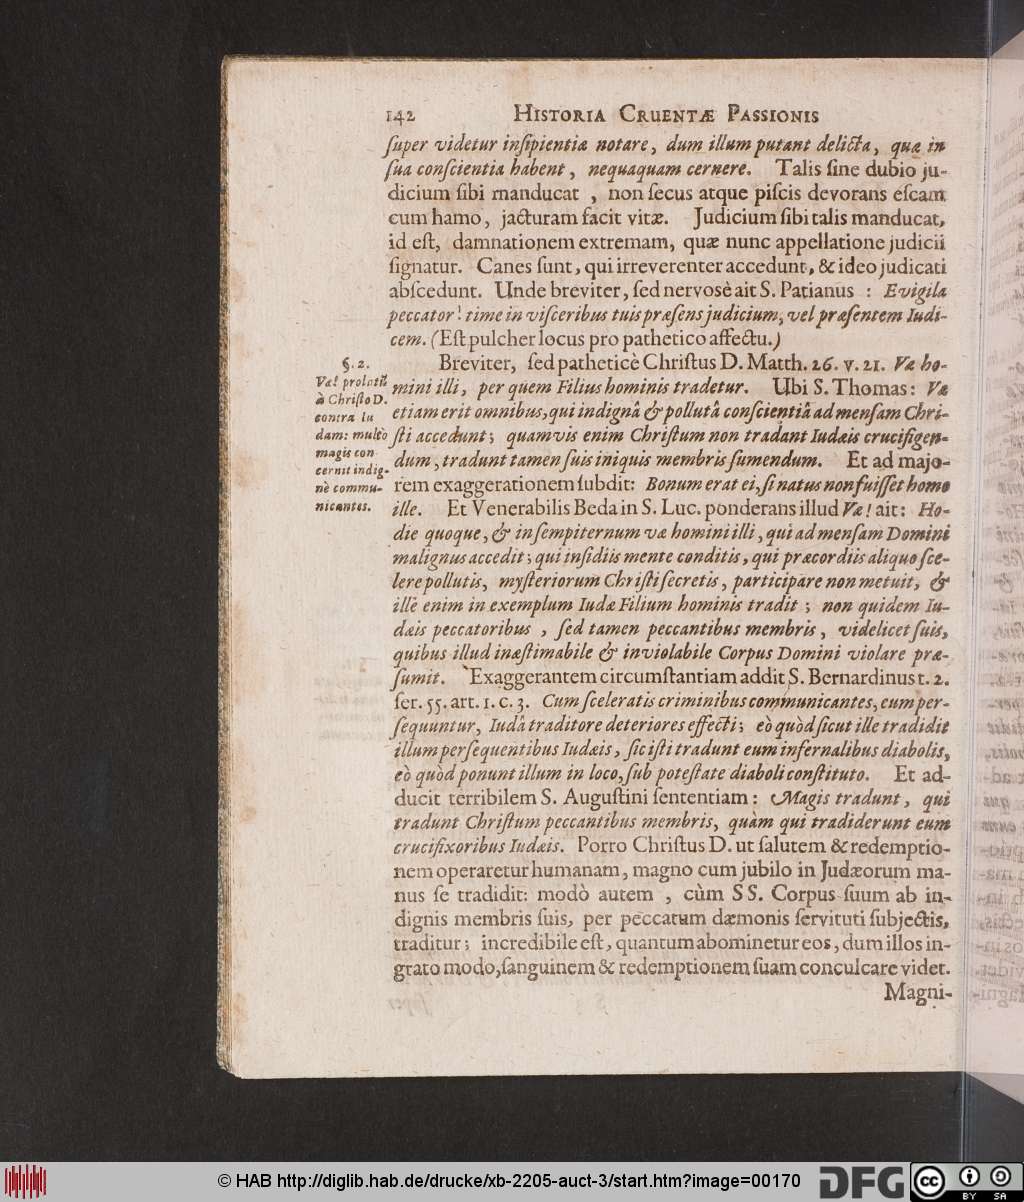 142 HISTORIA CRUENTÆ PASSIONIS
ſuper videtur inſipientiæ notare, dum illum putant delicta, quæ in
ſua conſcientia habent, nequaquam cernere. Talis ſine dubio ju-
dicium ſibi manducat , non ſecus atque piſcis devorans eſcam
cum hamo, jacturam facit vitæ. Judicium ſibi talis manducat,
id eſt, damnationem extremam, quæ nunc appellatione judicii
ſignatur. Canes ſunt, qui irreverenter accedunt, & ideo judicati
abſcedunt. Unde breviter, ſed nervosè ait S. Patianus : Evigila
peccator! time in viſceribus tuis præſens judicium, vel præſentem Iudi-
cem. (Eſt pulcher locus pro pathetico affectu.)
§. 2.
Væ! prolatũ
à Chriſto D.
contra Iu
dam: multò
magis con
cernit indig-
nè commu-
nicantes.
Breviter, ſed patheticè Chriſtus D. Matth. 26. v. 21. Væ ho-
mini illi, per quem Filius hominis tradetur. Ubi S. Thomas: Væ
etiam erit omnibus, qui indignâ & pollutâ conſcientiâ ad menſam Chri-
ſti accedunt; quamvis enim Chriſtum non tradant Iudæis crucifigen-
dum, tradunt tamen ſuis iniquis membris ſumendum. Et ad majo-
rem exaggerationem ſubdit: Bonum erat ei, ſi natus non fuiſſet homo
ille. Et Venerabilis Beda in S. Luc. ponderans illud Væ! ait: Ho-
die quoque, & in ſempiternum væ homini illi, qui ad menſam Domini
malignus accedit; qui inſidiis mente conditis, qui præcordiis aliquo ſce-
lere pollutis, myſteriorum Chriſti ſecretis, participare non metuit, &
ille enim in exemplum Iudæ Filium hominis tradit ; non quidem Iu-
dæis peccatoribus , ſed tamen peccantibus membris, videlicet ſuis,
quibus illud inæſtimabile & inviolabile Corpus Domini violare præ-
ſumit. Exaggerantem circumſtantiam addit S. Bernardinus t. 2.
ſer. 55. art. 1. c. 3. Cum ſceleratis criminibus communicantes, eum per-
ſequuntur, Iudâ traditore deteriores effecti; eò quòd ſicut ille tradidit
illum perſequentibus Iudæis, ſic iſti tradunt eum infernalibus diabolis,
eò quòd ponunt illum in loco, ſub poteſtate diaboli conſtituto. Et ad-
ducit terribilem S. Auguſtini ſententiam : Magis tradunt, qui
tradunt Chriſtum peccantibus membris, quàm qui tradiderunt eum
crucifixoribus Iudæis. Porro Chriſtus D. ut ſalutem & redemptio-
nem operaretur humanam, magno cum jubilo in Judæorum ma-
nus ſe tradidit: modò autem , cùm SS. Corpus ſuum ab in-
dignis membris ſuis, per peccatum dæmonis ſervituti ſubjectis,
traditur; incredibile eſt, quantum abominetur eos, dum illos in-
grato modo, ſanguinem & redemptionem ſuam conculcare videt.
Magni-
© HAB http://diglib.hab.de/drucke/xb-2205-auct-3/start.htm?image=00170
DFG
cc BY SA